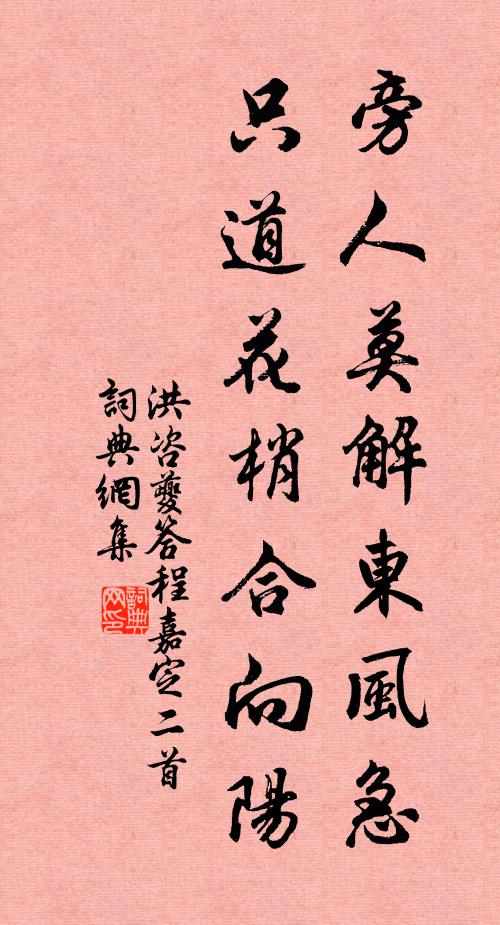 旁人莫解東風急
只道花梢合向陽
洪咨夔答程嘉定二首
詞典網集
詞典
网印